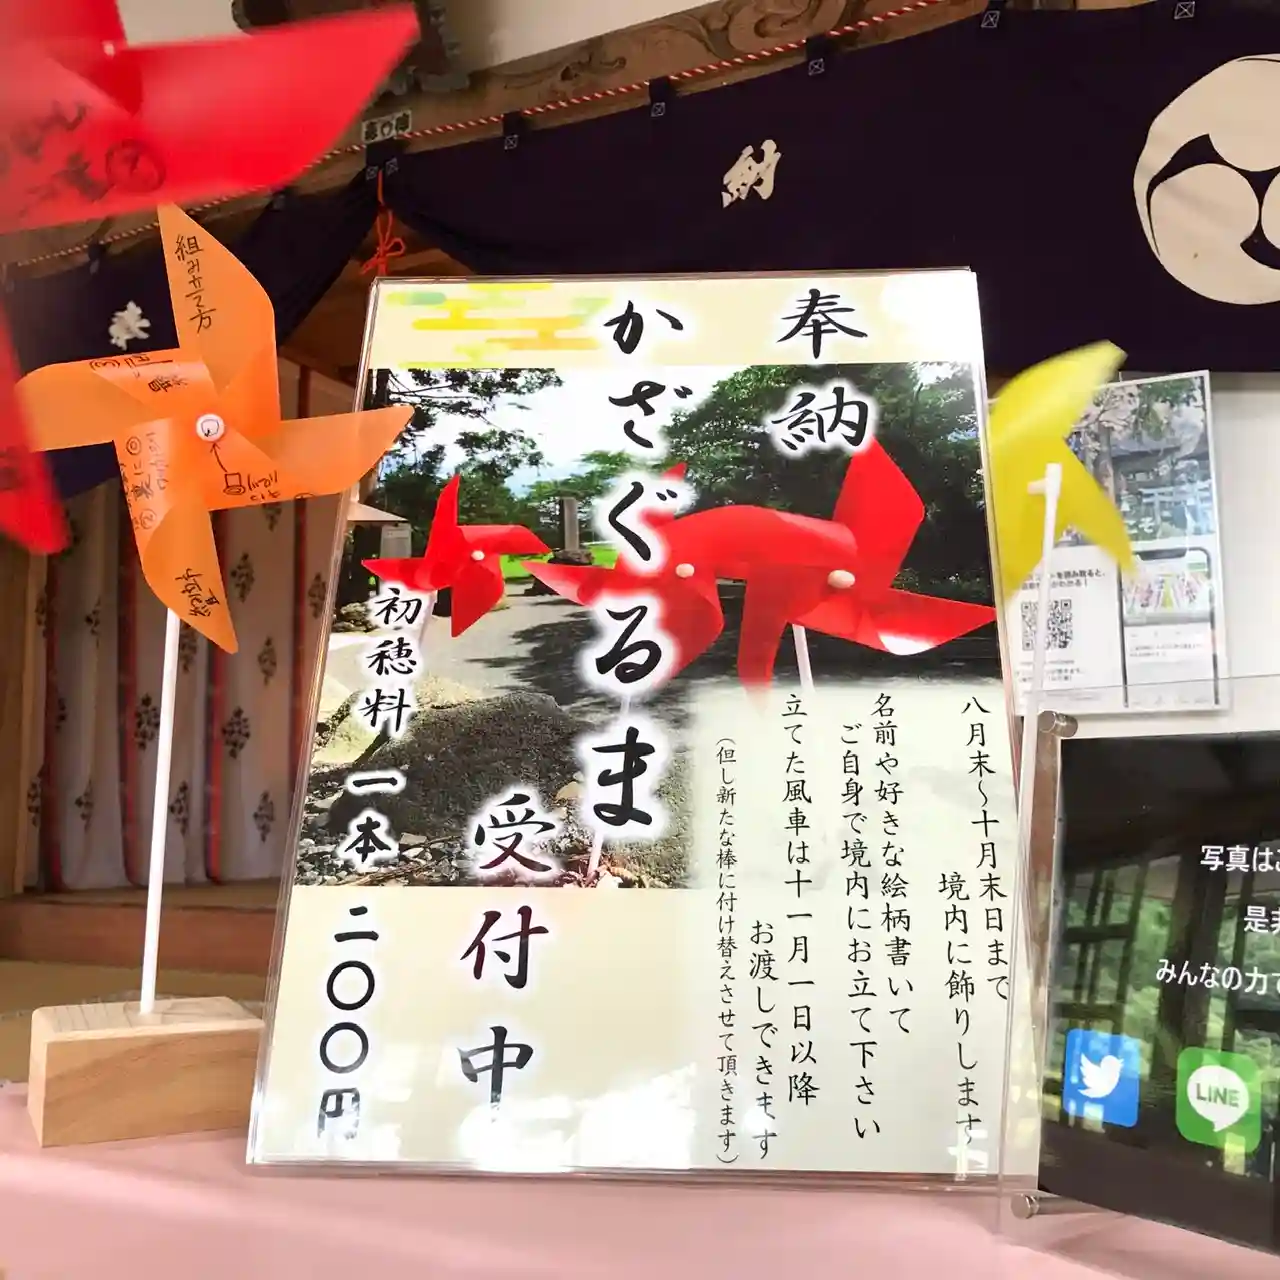 奉納
かざぐるま
受付中
初穂料 一本 二〇〇円
八月末～十月末日まで
境内に飾りします
名前や好きな絵柄書いて
ご自身で境内にお立て下さい
立てた風車は十一月一日以降
お渡しできます
(但し新たな棒に付け替えさせて頂きます)
納
奉
組み立て方
写真は
みんなの力で
LINE